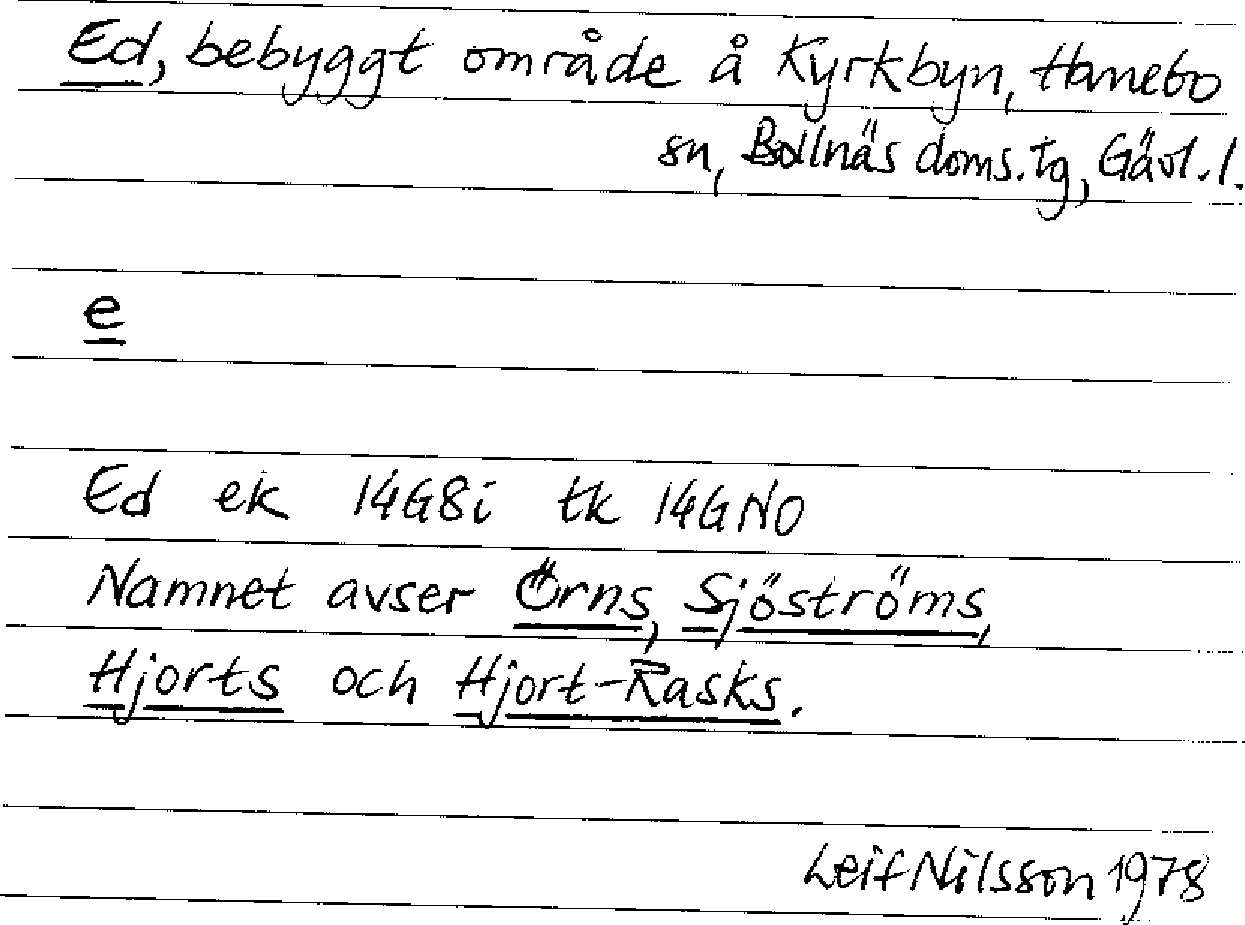 Ed, bebyggt område å Kyrkbyn, Hanebo
sn, Bollnäs doms.tg, Gävl.l.
e
Ed ek 14G8i tk 14GNO
Namnet avser Örns, Sjöströms,
Hjorts och Hjort-Rasks.
Leif Nilsson 1978